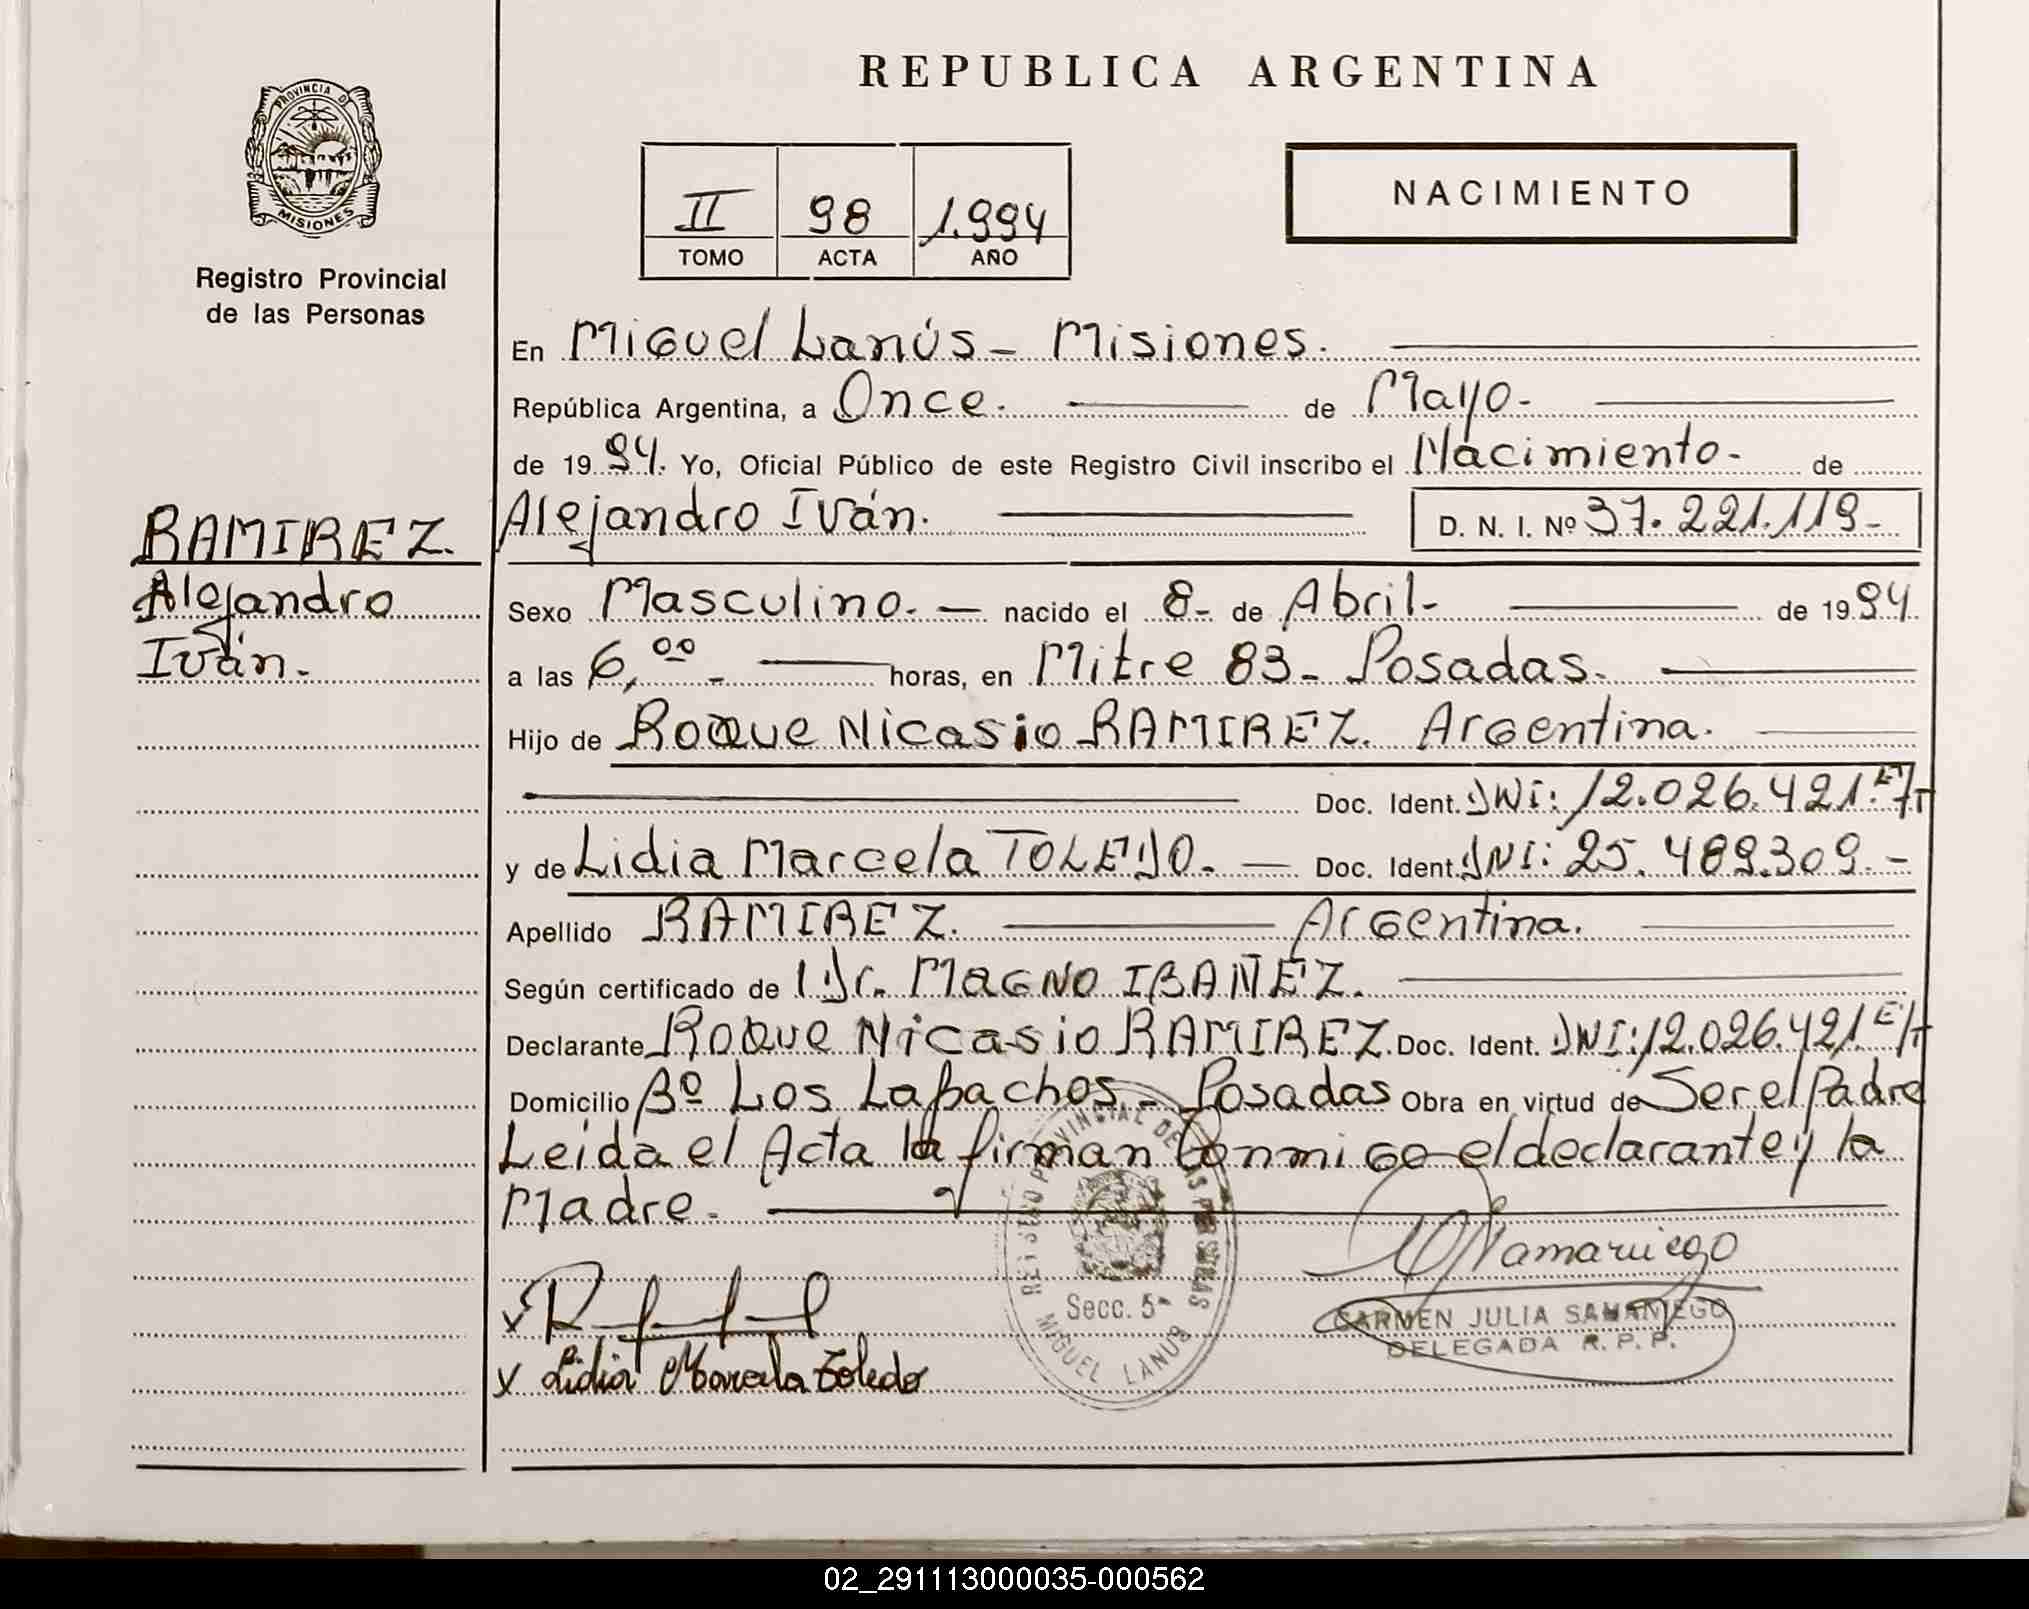 REPUBLICA ARGENTINA
PROVINCIA DE
MISIONES
Registro Provincial
de las Personas
II 98 1.994
TOMO ACTA AÑO
NACIMIENTO
En Miguel Lanús - Misiones.
República Argentina, a Once. de Mayo.
de 1994. Yo, Oficial Público de este Registro Civil inscribo el Nacimiento - de
RAMIREZ.
Alejandro
Iván.
Alejandro Iván. D. N. I. Nº 37.221.119-
Sexo Masculino. - nacido el 8- de Abril- de 1994
a las 6,00- horas, en Mitre 83- Posadas.
Hijo de Roque Nicasio RAMIREZ. Argentina.
Doc. Ident. DNI: 12.026.421.E/T
y de Lidia Marcela TOLEDO. - Doc. Ident. DNI: 25.489.309.-
Apellido RAMIREZ. Argentina.
Según certificado de Dr. Magno IBAÑEZ.
Declarante Roque Nicasio RAMIREZ. Doc. Ident. DNI: 12.026.421.E/T
Domicilio Bº Los Lapachos - Posadas Obra en virtud de Ser el Padre
Leida el Acta la firman Conmigo el declarante y la
Madre.
REGISTRO PROVINCIAL DE LAS PERSONAS
Secc. 5ª
MIGUEL LANUS
CARMEN JULIA SAMANIEGO
DELEGADA R. P. P.
x
x Lidia Marcela Toledo
02_291113000035-000562